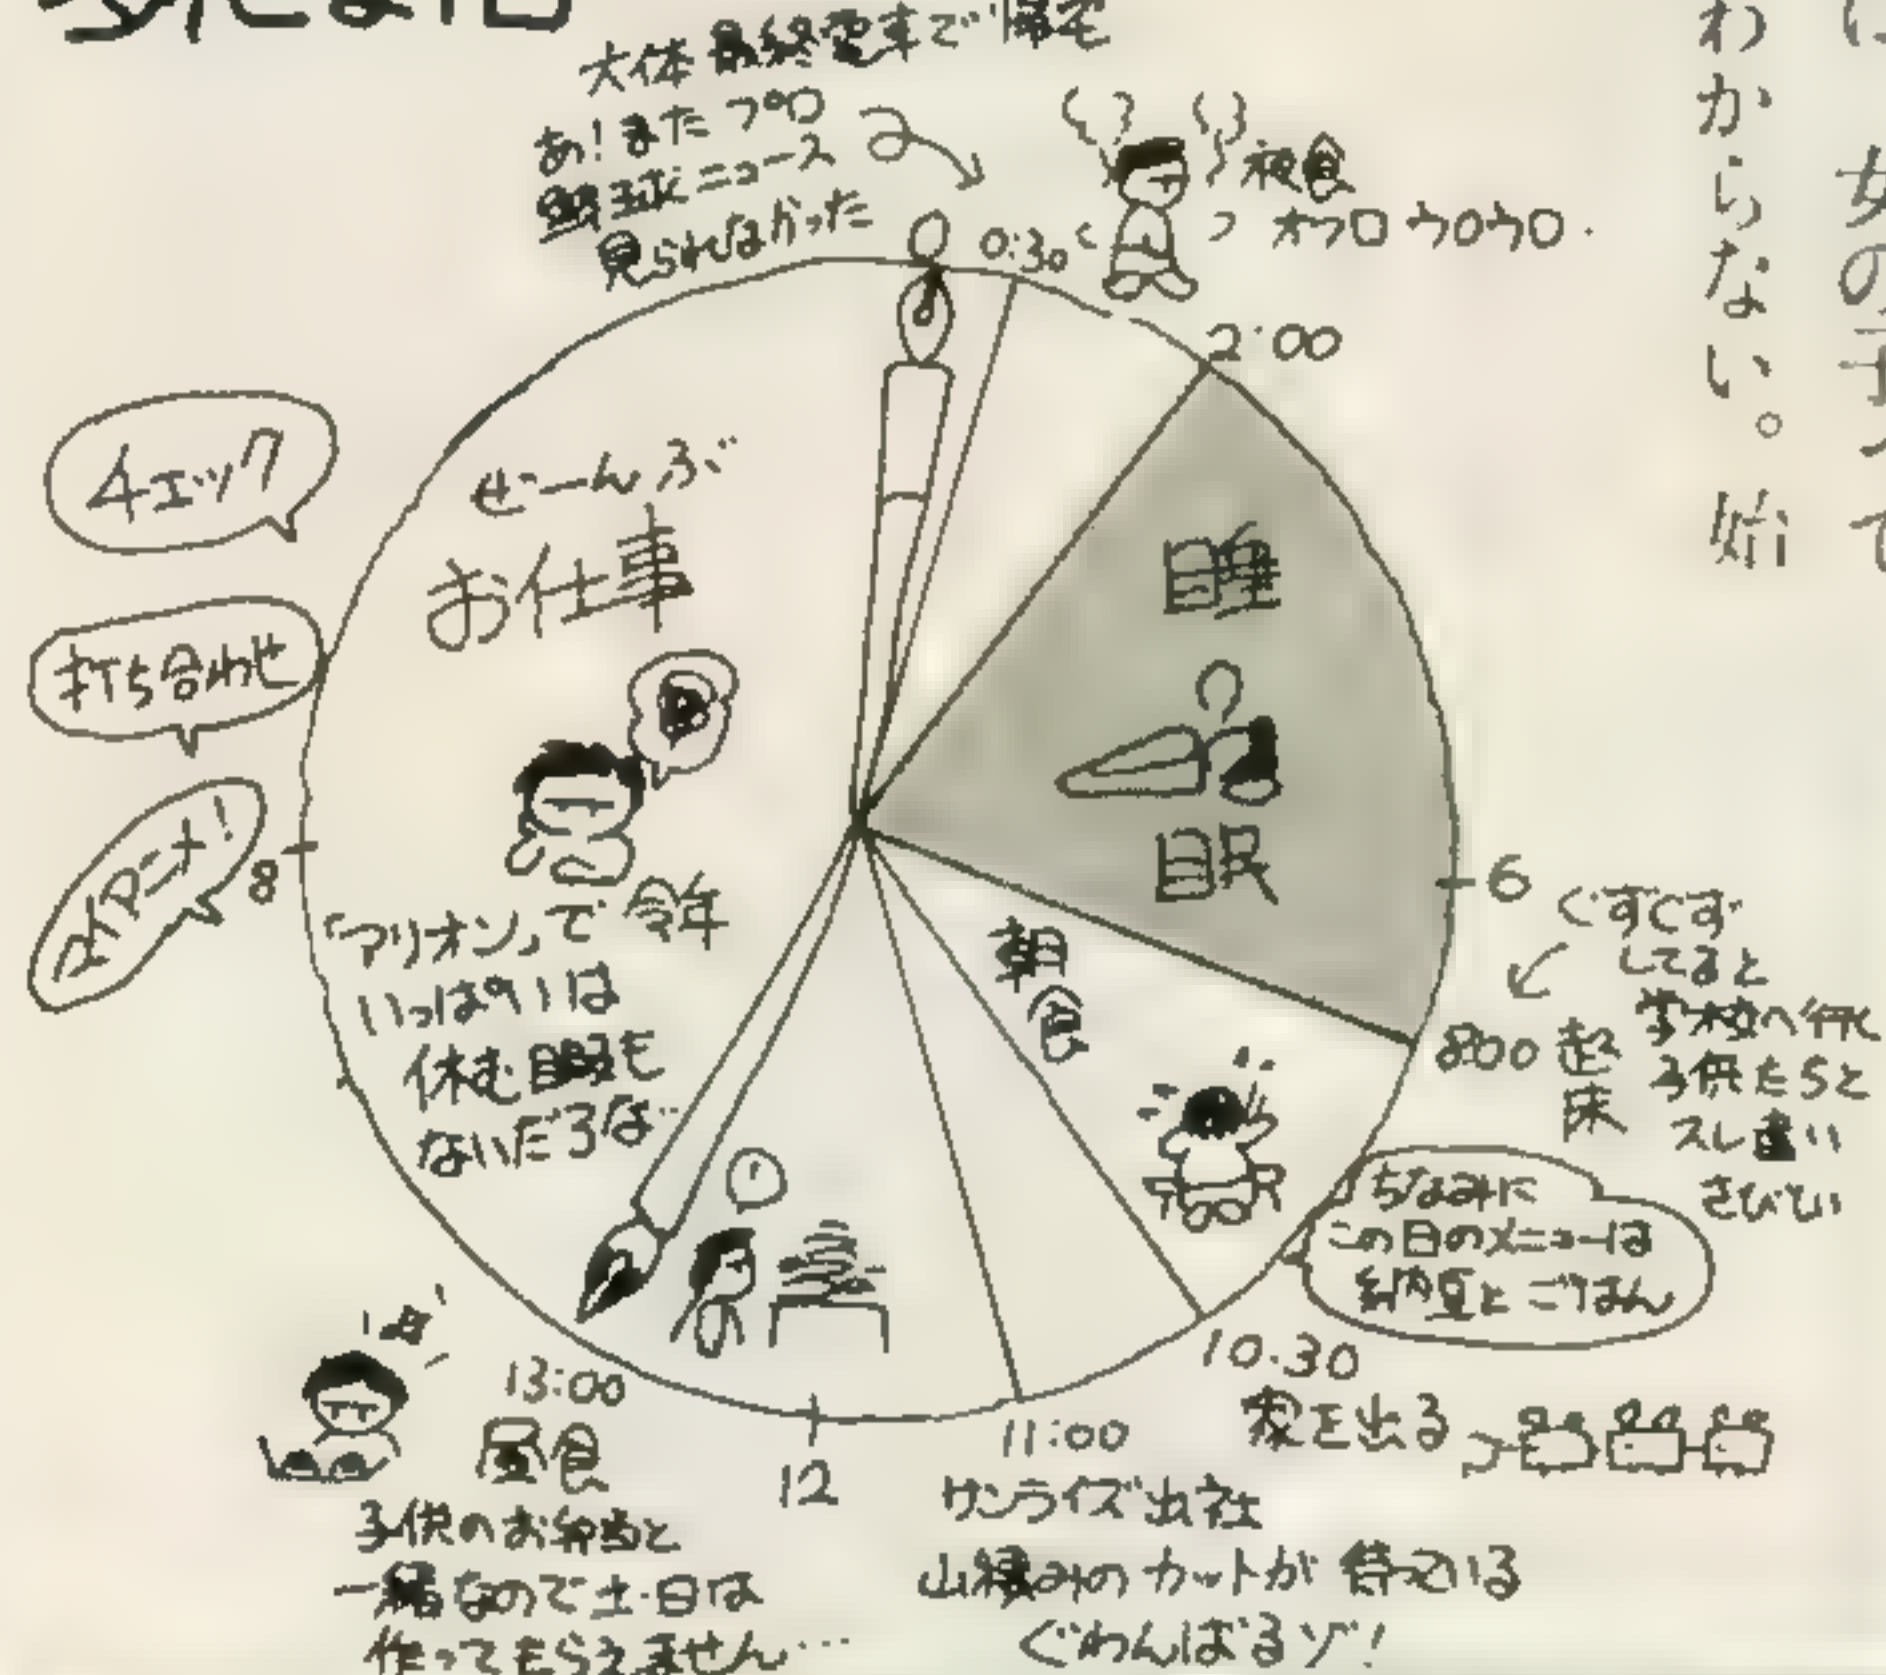 大体最終電車で帰宅
あ！またプロ
野球ニュース
見られなかった
0:30
夜食
オフロ ウロウロ.
2:00
睡
眠
6
ぐずぐず
してると
学校へ行く
子供たちと
スレ違い
さびしい
8:00 起
床
朝
食
ちなみに
この日のメニューは
納豆とごはん
10.30
家を出る
11:00
サンライズ出社
山積みのカットが待っている
ぐわんばるゾ！
12
13:00
昼食
子供のお弁当と
一緒なので土・日は
作ってもらえません…
ぜーんぶ
お仕事
「アリオン」で今年
いっぱいは
休む暇も
ないだろな…
8
チェック
打ち合わせ
アニメ！
女の子って
わからない。始